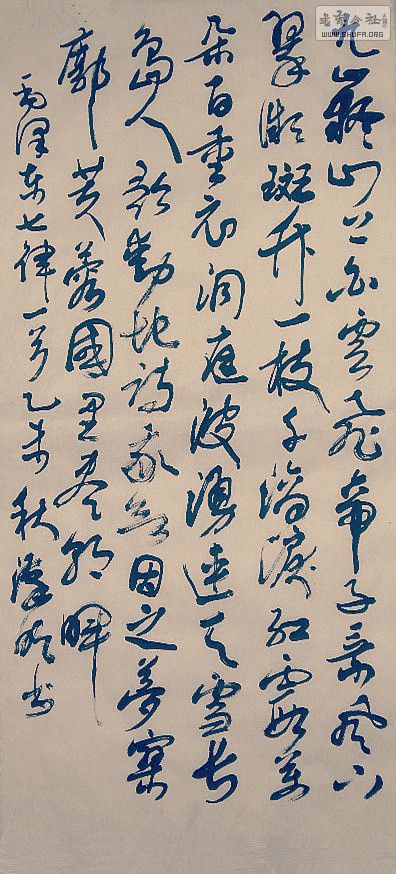 九嶷山上白雲飛帝子乘風下
翠微斑竹一枝千滴淚紅霞萬
朵百重衣洞庭波湧連天雪長
島人歌動地詩我欲因之夢寥
廓芙蓉國里盡朝暉
毛澤東七律一首乙未秋书
公社
WWW.SHUFA.ORG